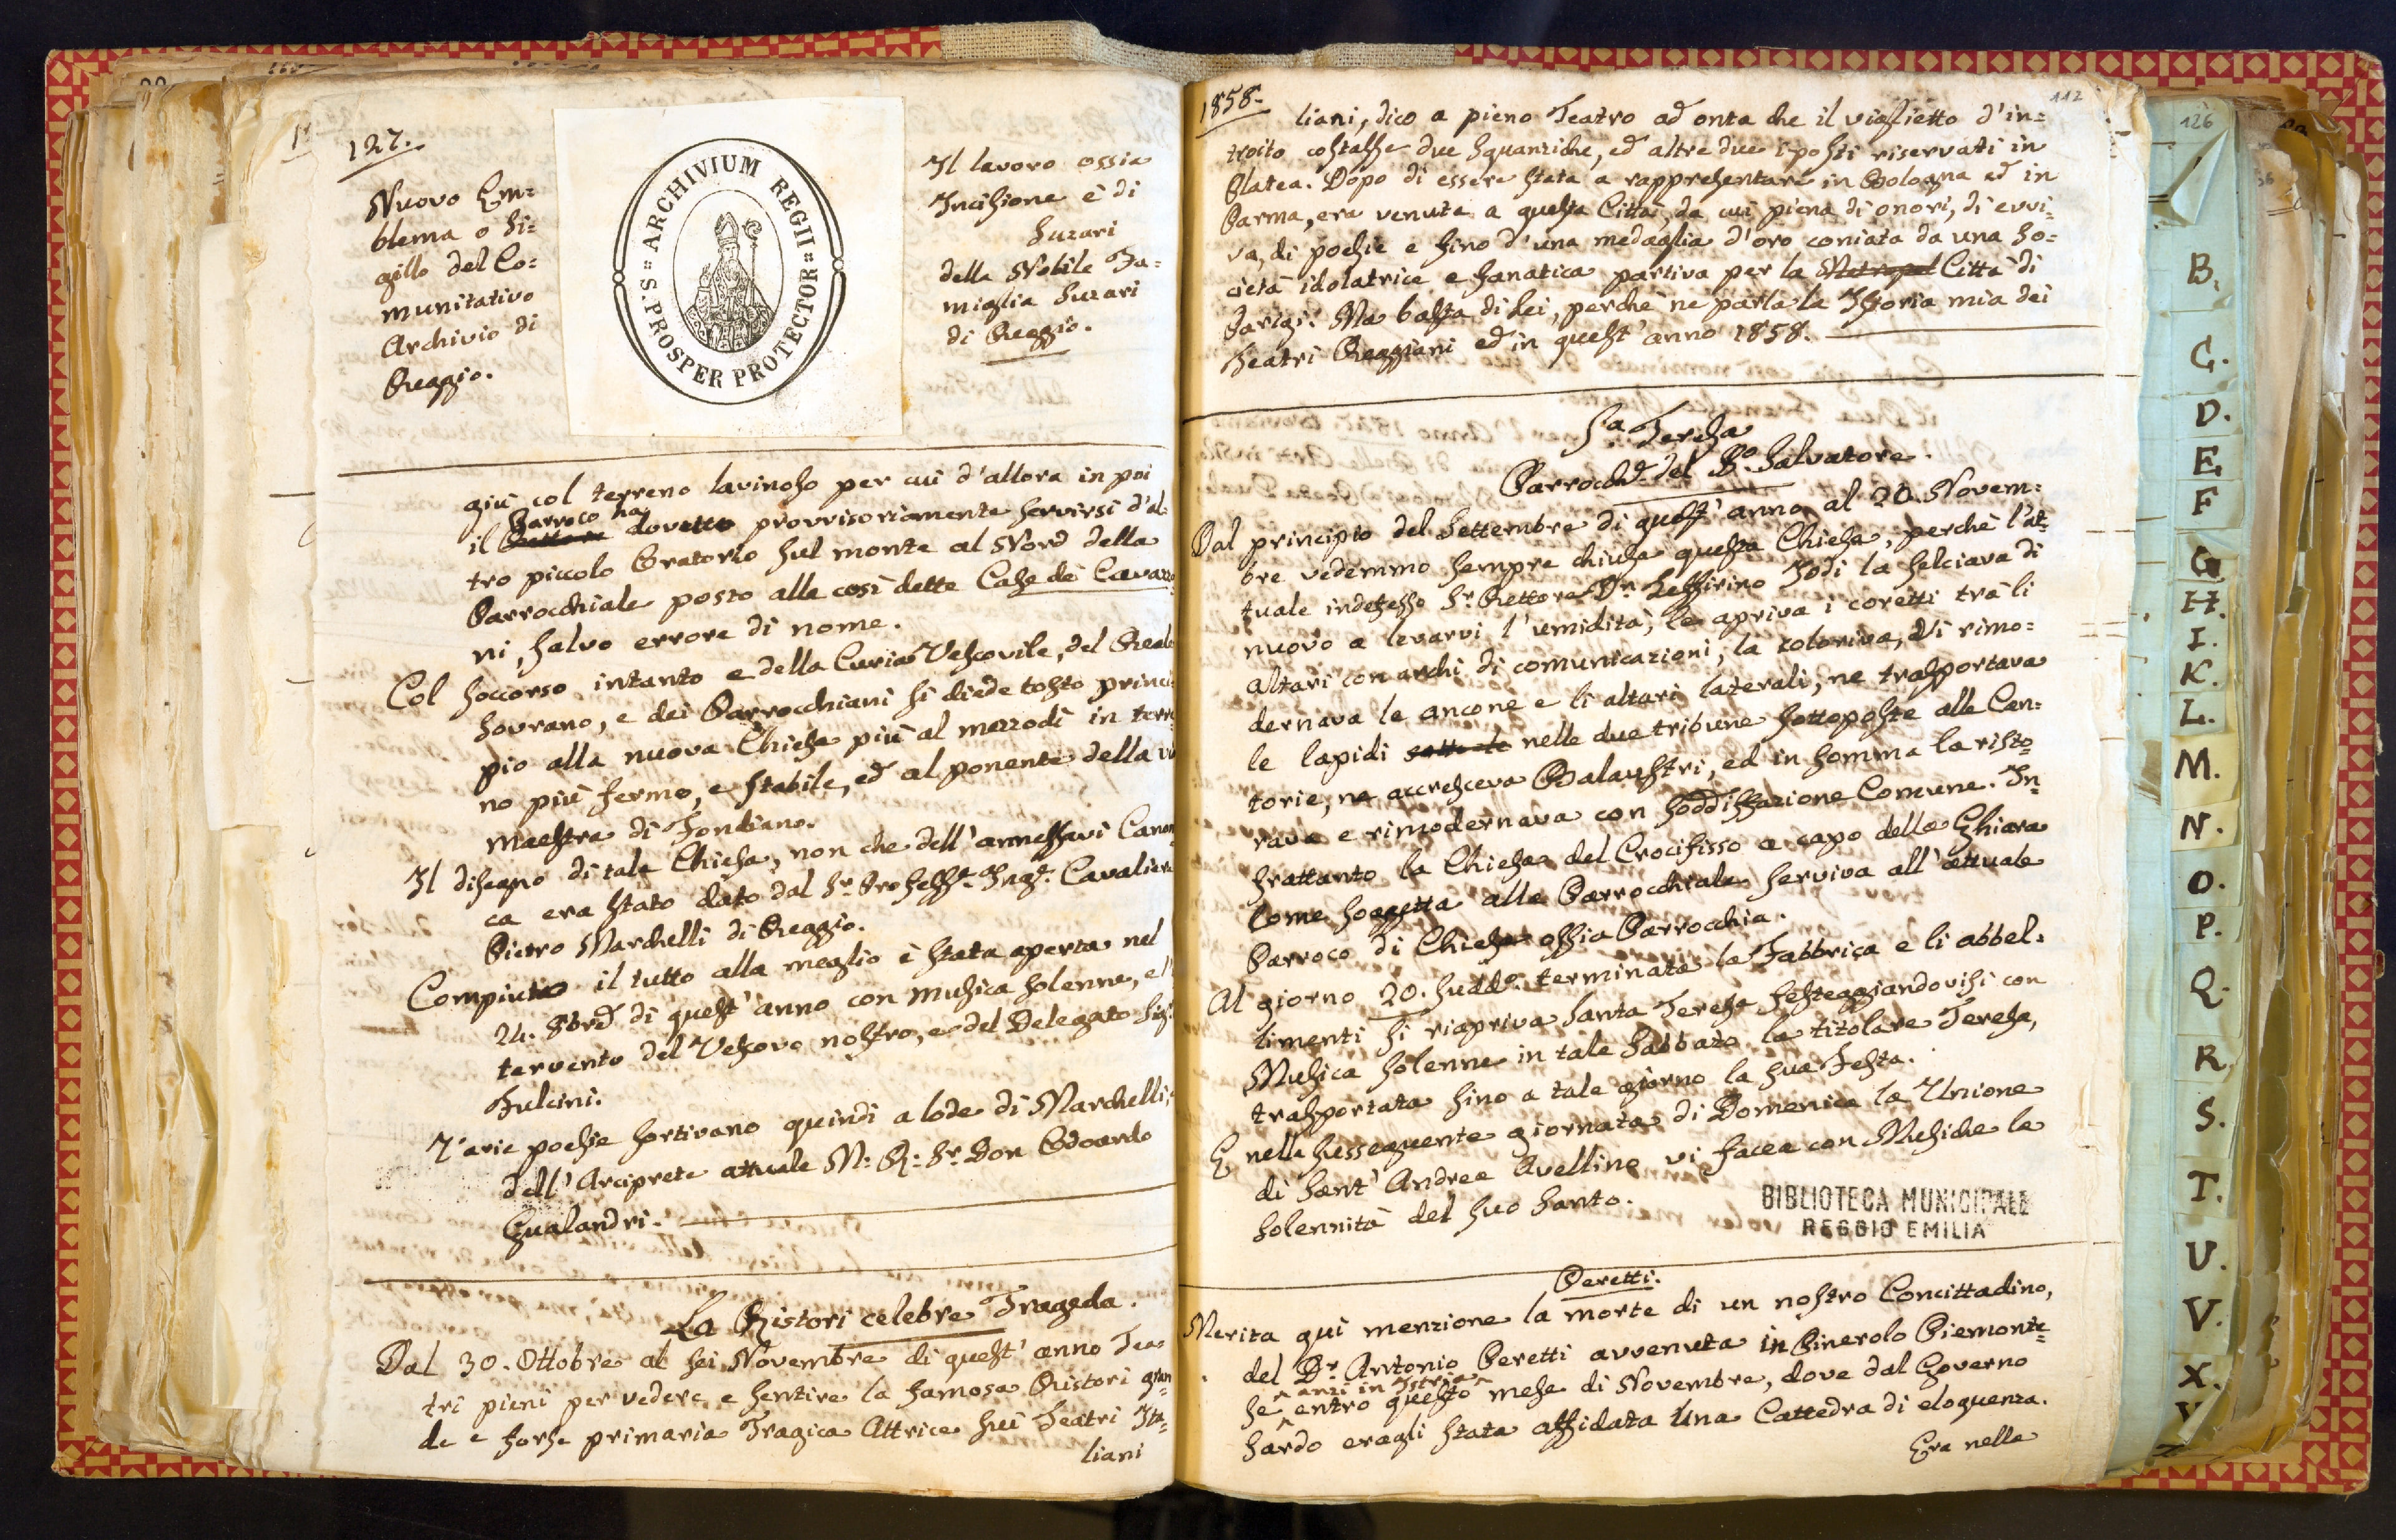 127.
Nuovo Em=
blema o si=
gillo del Co=
munitativo
Archivio di
Reggio.
ARCHIVIUM REGII
S. PROSPER PROTECTOR
Il lavoro ossia
Incisione è di
Suzari
della Nobile Fa=
miglia Suzari
di Reggio.
giù col terreno lavinoso per cui d'allora in poi
Parroco ha
il Rettore dovette provvisoriamente servirsi d'al=
tro piccolo Oratorio sul monte al Nord della
Parrocchiale posto alle così dette Case dei Cavazzo
ni, salvo errore di nome.
Col soccorso intanto e della Curia Vescovile, del Reale
Sovrano, e dei Parrocchiani si diede tosto princi
pio alla nuova Chiesa più al mezzodì in terre
no più fermo, e stabile, ed al ponente della
maestra di Fondiano.
Il disegno di tale Chiesa, non che dell'annessavi Canon
ca era stato dato dal Sr. Professe. Ingr. Cavaliere
Pietro Marchelli di Reggio.
Compiuto il tutto alla meglio è stata aperta nel
24. 8bre di quest'anno con musica solenne,
tervento del Vescovo nostro, e del Delegato Sigr.
Fulcini.
Varie poesie sortivano quindi a lode di Marchelli,
dell'Arciprete attuale M: R: Sr. Don Edoardo
Gualandri.
La Ristori celebre Trageda.
Dal 30. Ottobre al sei Novembre di quest'anno Tea
tri pieni per vedere e sentire la famosa Ristori gran
de e forse primaria Tragica Attrice sui Teatri Ita=
liani
1858.
112
liani, dico a pieno Teatro ad onta che il viglietto d'in=
troito costasse due Svanziche, ed altre due i posti riservati in
Platea. Dopo di essere stata a rappresentare in Bologna ed in
Parma, era venuta a questa Città, da cui piena di onori, di evvi=
va, di poesie e sino d'una medaglia d'oro coniata da una So=
cietà idolatrice e fanatica partiva per la Metropol Città di
Parigi. Ma basta di Lei, perchè ne parla la Istoria mia dei
Teatri Reggiani ed in quest'anno 1858.
Sa. Teresa
Parrocchle. del So. Salvatore.
Dal principio del Settembre di quest'anno al 20. Novem=
bre vedemmo sempre chiusa questa Chiesa, perchè l'at=
tuale indefesso Sr. Rettore Dn. Zeffirino Jodi la selciava di
nuovo a levarvi l'umidità, le apriva i coretti trà li
Altari con archi di comunicazioni, la coloriva, vi rimo=
dernava le ancone e li altari laterali, ne trasportava
le lapidi sotto le nelle due tribune sottoposte alle Can=
torie, ne accresceva Balaustri, ed in somma la risto=
rava e rimodernava con soddisfazione Comune. In=
frattanto la Chiesa del Crocifisso a capo della Ghiara
come soggetta alla Parrocchiale serviva all'attuale
Parroco di Chiesa ossia Parrocchia.
Al giorno 20. suddo. terminata la Fabbrica e li abbel=
limenti si riapriva Santa Teresa festeggiandovisi con
Musica solenne in tale Sabbato la titolare Teresa,
trasportata sino a tale giorno la sua Festa.
E nella susseguente giornata di Domenica la Unione
di Sant'Andrea Avellino vi facea con Musiche la
solennità del suo Santo.
BIBLIOTECA MUNICIPALE
REGGIO EMILIA
Peretti.
Merita qui menzione la morte di un nostro Concittadino,
del Dr. Antonio Peretti avvenuta in Pinerolo Piemonte=
anzi in Istria
se entro questo mese di Novembre, dove dal Governo
Sardo eragli stata affidata una Cattedra di eloquenza.
Era nella
126
B.
C.
D.
E
F
G
H.
I.
K.
L.
M.
N.
O.
P.
Q.
R
S.
T.
U.
V.
X.